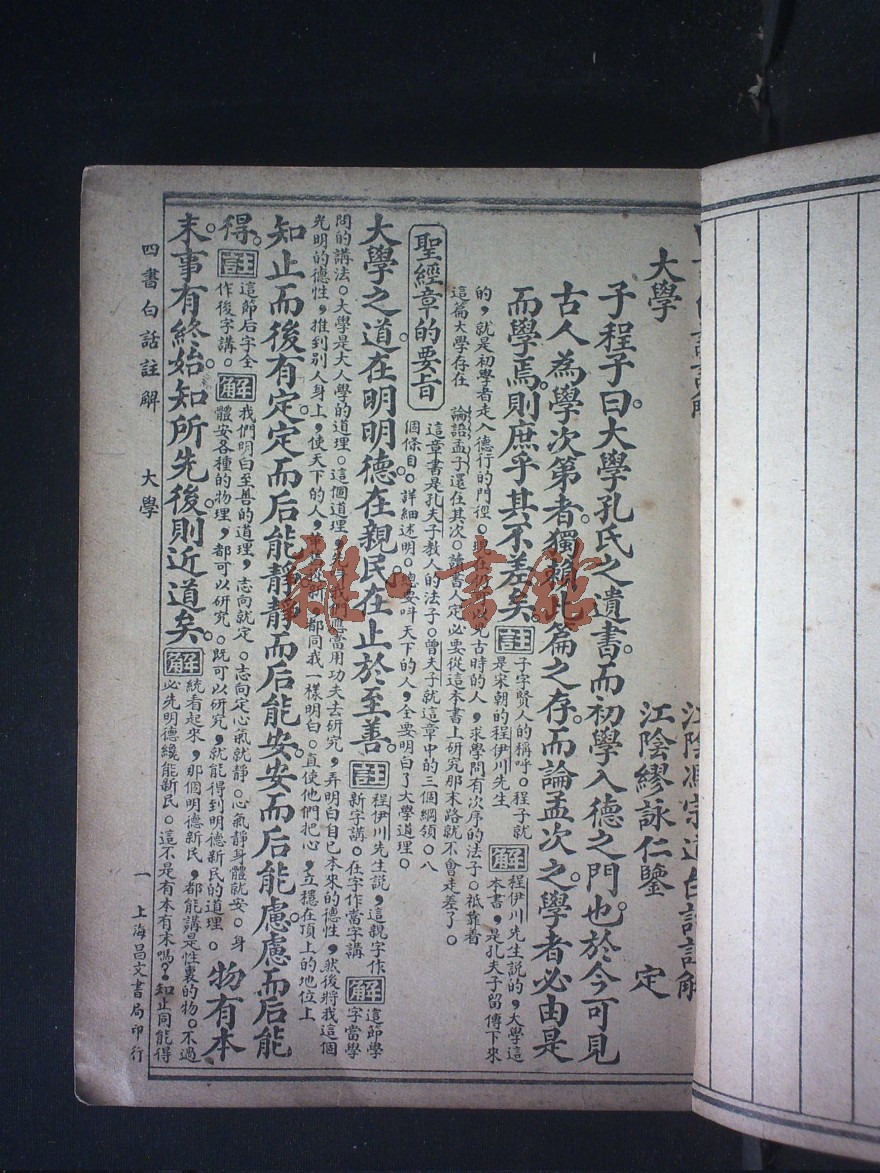 江陰馮宗道白話註解
江陰繆詠仁鑒定
大學
子程子曰。大學孔氏之遺書。而初學入德之門也。於今可見
古人為學次第者。獨賴此篇之存。而論孟次之。學者必由是
而學焉。則庶乎其不差矣。註 子字賢人的稱呼。程子就
是宋朝的程伊川先生 解 程伊川先生說的,大學這
本書,是孔夫子留傳下來
的,就是初學者走入德行的門徑。現在仍可以見古時的人,求學問有次序的法子。祇靠着
這篇大學存在 論語孟子還在其次。讀書人定必要從這本書上研究那末路就不會走差了。
聖經章的要旨
這章書是孔夫子教人的法子。曾夫子就這章中的三個綱領。八
個條目。詳細述明。總要叫天下的人,全要明白了大學道理。
大學之道。在明明德。在親民。在止於至善。註 程伊川先生說,這親字作
新字講。在字作當字講 解 這節學
字當學
問的講法。大學是大人學的道理。這個道理,先身我們應當用功夫去研究,弄明白自己本來的德性,然後將我這個
光明的德性,推到別人身上,使天下的人,都同我一樣明白。直使他們把心,立穩在頂上的地位上
知止而後有定。定而后能靜。靜而后能安。安而后能慮。慮而后能
得。註 這節后字全
作後字講。解 我們明白至善的道理,志向就定。志向定心氣就靜。心氣靜身體就安。身
體安各種的物理,都可以研究。既可以研究,就能得到明德新民的道理。物有本
末。事有終始。知所先後。則近道矣。解 統看起來,那個明德新民,都能講是性裏的物。不過
必先明德纔能新民。這不是有本有末嗎?知止同能得
四書白話註解 大學 一 上海昌文書局印行
雜·書館